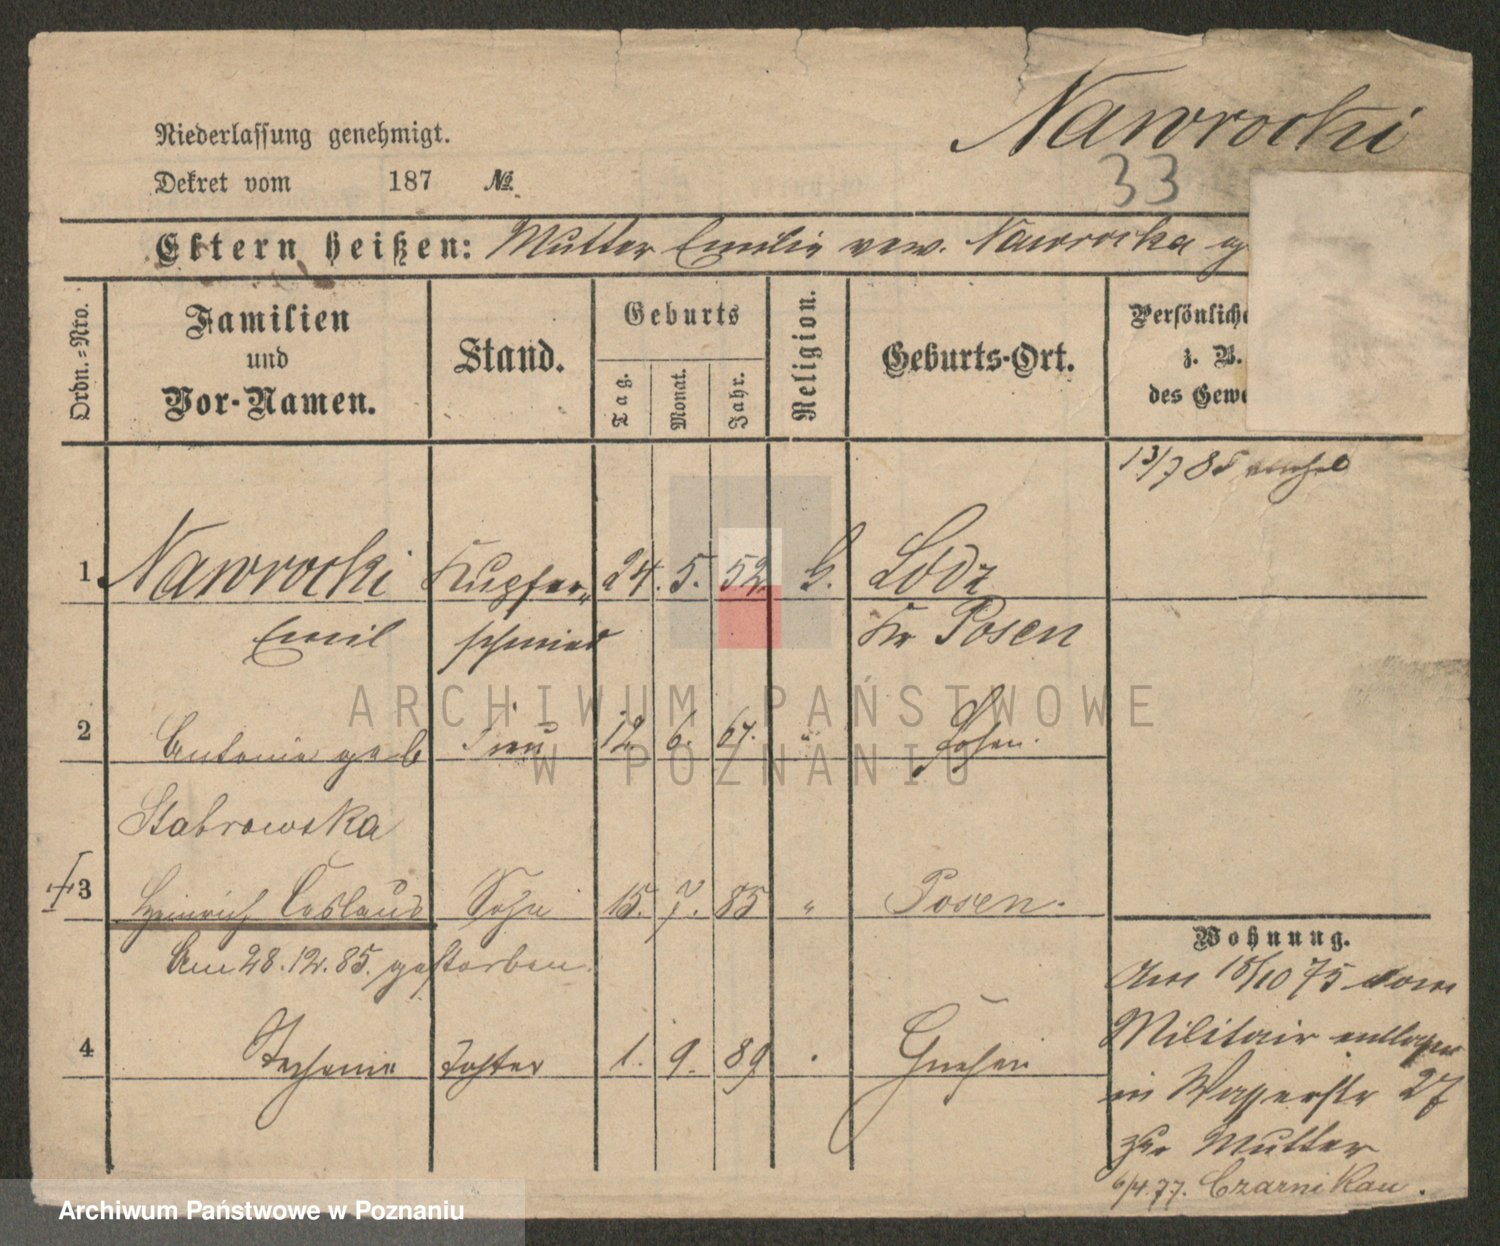 Nawrocki
33
Niederlassung genehmigt.
Dekret vom 187 №
Eltern heißen: Mutter Emilie verw. Nawrocka
Ordn.=Nro.
Familien und Vor-Namen.
Stand.
Geburts
Tag.
Monat.
Jahr.
Religion.
Geburts-Ort.
Persönliche
z. B.
des Gewe
13/7 85
1 Nawrocki Kupfer- 24. 5. 52. Lodz
Emil schmied Kr Posen
2 Antonie geb Frau 12. 6. 67. " Posen.
Stabrowska
3 Heinrich Ceslaus Sohn 15. 7. 85 " Posen.
Am 28.12.85. gestorben.
4 Stephanie Tochter 1. 9. 89 Gnesen
Wohnung.
Am 15/10 75 vom
Militair entlassen
in Wasserstr 27
zur Mutter
6/4.77. Czarnikau.
ARCHIWUM PAŃSTWOWE
W POZNANIU
Archiwum Państwowe w Poznaniu